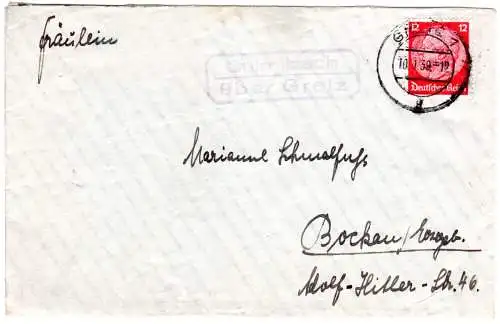 Fräulein
über Greiz
12 12
Deutsches Reich
Marianne Schmalfuß
Bockau/Erzgeb.
Adolf-Hitler-Str. 46.